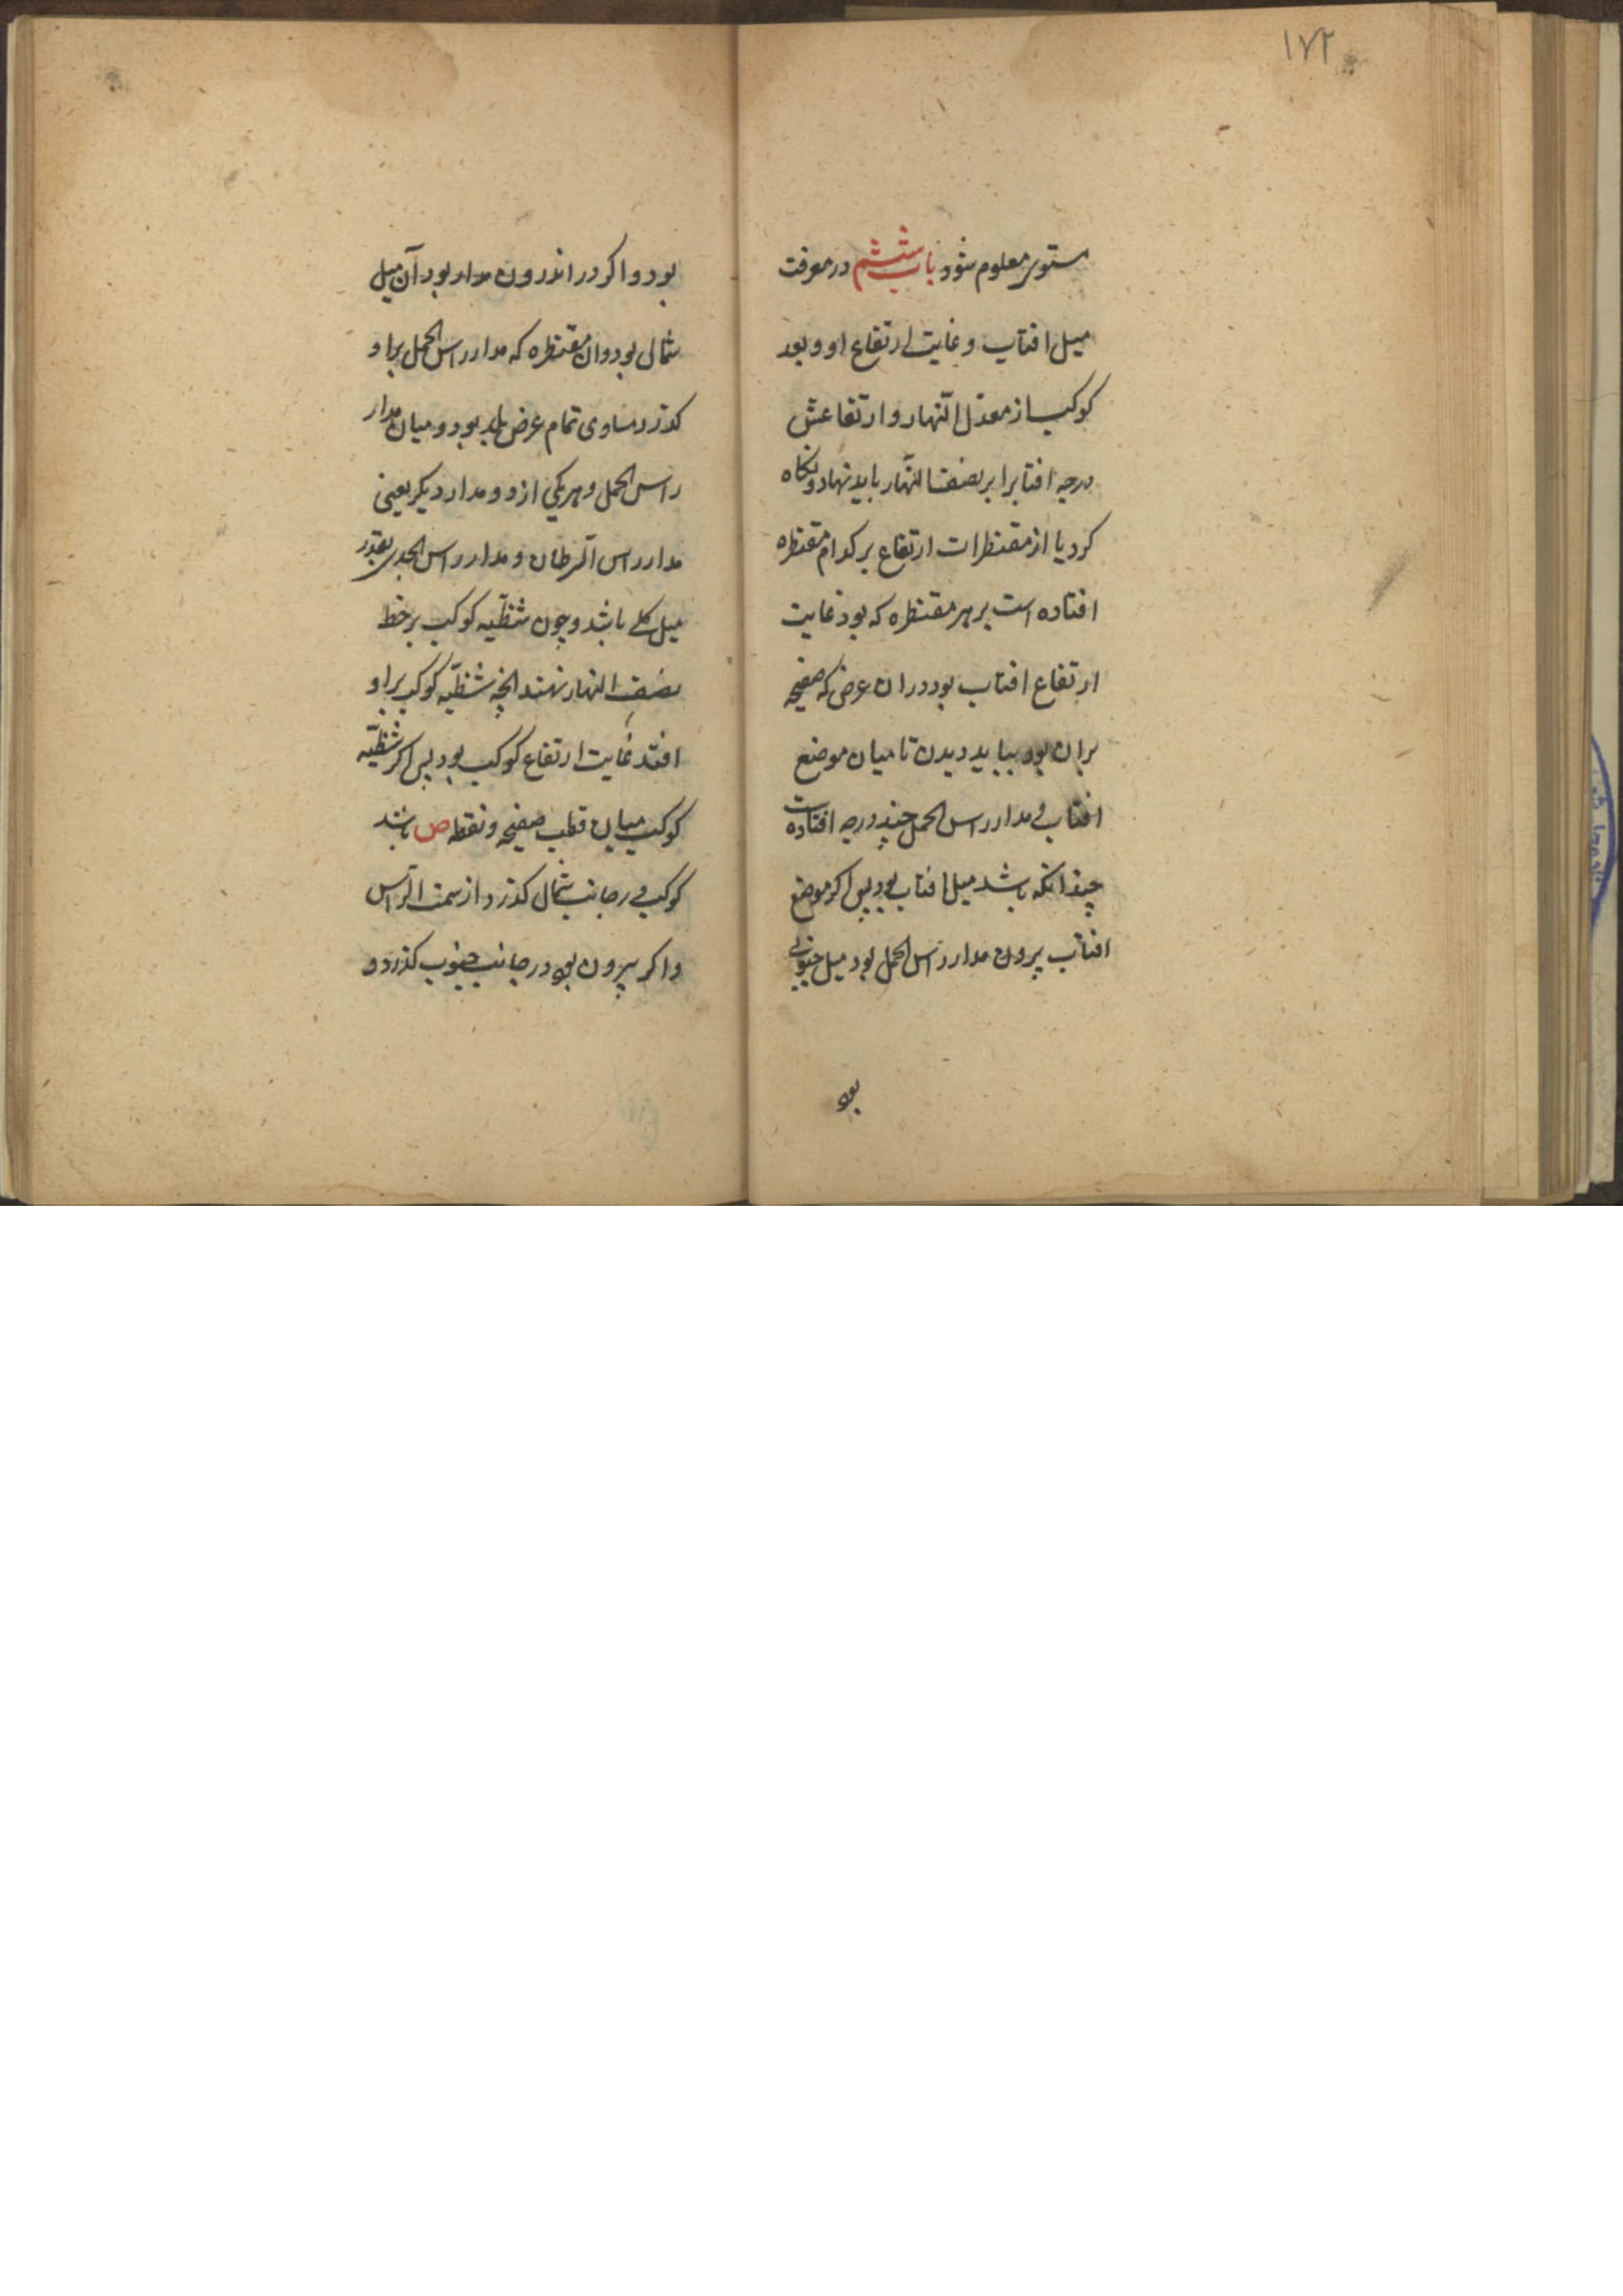 ۱۷۲
مستوی معلوم شود باب ششم در معرفت
میل افتاب و غایت ارتفاع او و بعد
کوکب از معدّل النّهار و ارتفاعش
درجه افتابرا بر نصف النّهار باید نهاد و نکاه
کرد یا از مقنطرات ارتفاع بر کدام مقنطره
افتاده است بر هر مقنطره که بود غایت
ارتفاع افتاب بود دران عرض که صفیحه
بران بود بباید دیدن تا میان موضع
افتاب و مدار راس الحمل چند درجه افتادست
چندانکه باشد میل افتاب بود پس اکر موضع
افتاب بیرون مدار راس الحمل بود میل جنوبی
بود
بود و اکر در اندرون مدار بود آن میل
شمالی بود وان مقنطره که مدار راس الحمل براو
کذرد مساوی تمام عرض بلد بود و میان مدار
راس الحمل و هر یکی از دو مدار دیکر یعنی
مدار راس السّرطان و مدار راس الجدی بقدر
میل کلی باشد و چون شظّیه کوکب بر خط
نصف النهار نهند انچه شظّیه کوکب براو
افتد غایت ارتفاع کوکب بود پس اکر شظّیه
کوکب میان قطب صفیحه و نقطه ص باشد
کوکب در جانب شمال کذرد از سمت الرّاس
و اکر بیرون بود در جانب جنوب کذرد و